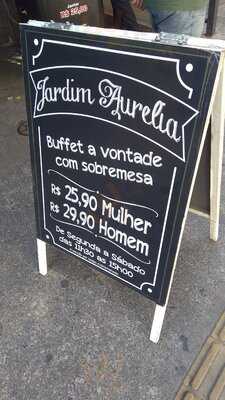 R$ 25,00
Jardim Aurelia
Buffet a vontade
com sobremesa
R$ 25,90 Mulher
R$ 29,90 Homem
De Segunda a Sábado
das 11h30 as 15h00